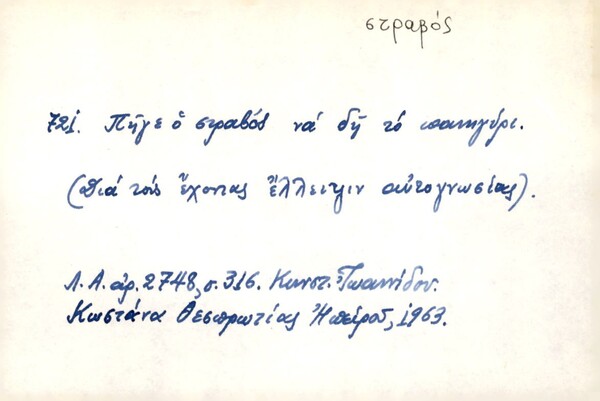 στραβός
721. Πῆγε ὁ στραβός νά δῆ τό πανηγύρι.
(Διά τούς ἔχοντας ἔλλειψιν αὐτογνωσίας).
Λ.Α. ἀρ. 2748, σ. 316. Κωνστ. Ἰωαννίδου.
Κωστάνα Θεσπρωτίας Ἠπείρου, 1963.